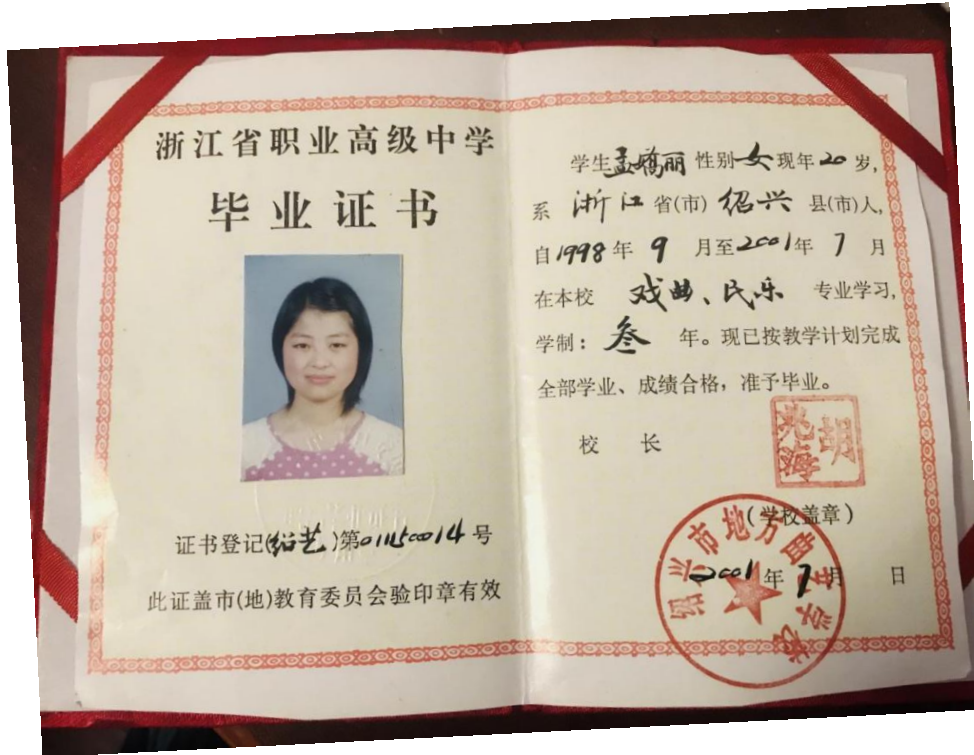 浙江省职业高级中学
毕业证书
证书登记(绍艺)第01150014号
此证盖市(地)教育委员会验印章有效
学生孟嬌丽性别女现年20岁,
系浙江省(市)绍兴县(市)人,
自1998年9月至2001年7月
在本校戏曲、民乐专业学习,
学制：叁年。现已按教学计划完成
全部学业、成绩合格，准予毕业。
校长
胡兆海
(学校盖章)
绍兴市地方曲艺学校
2001年7月 日